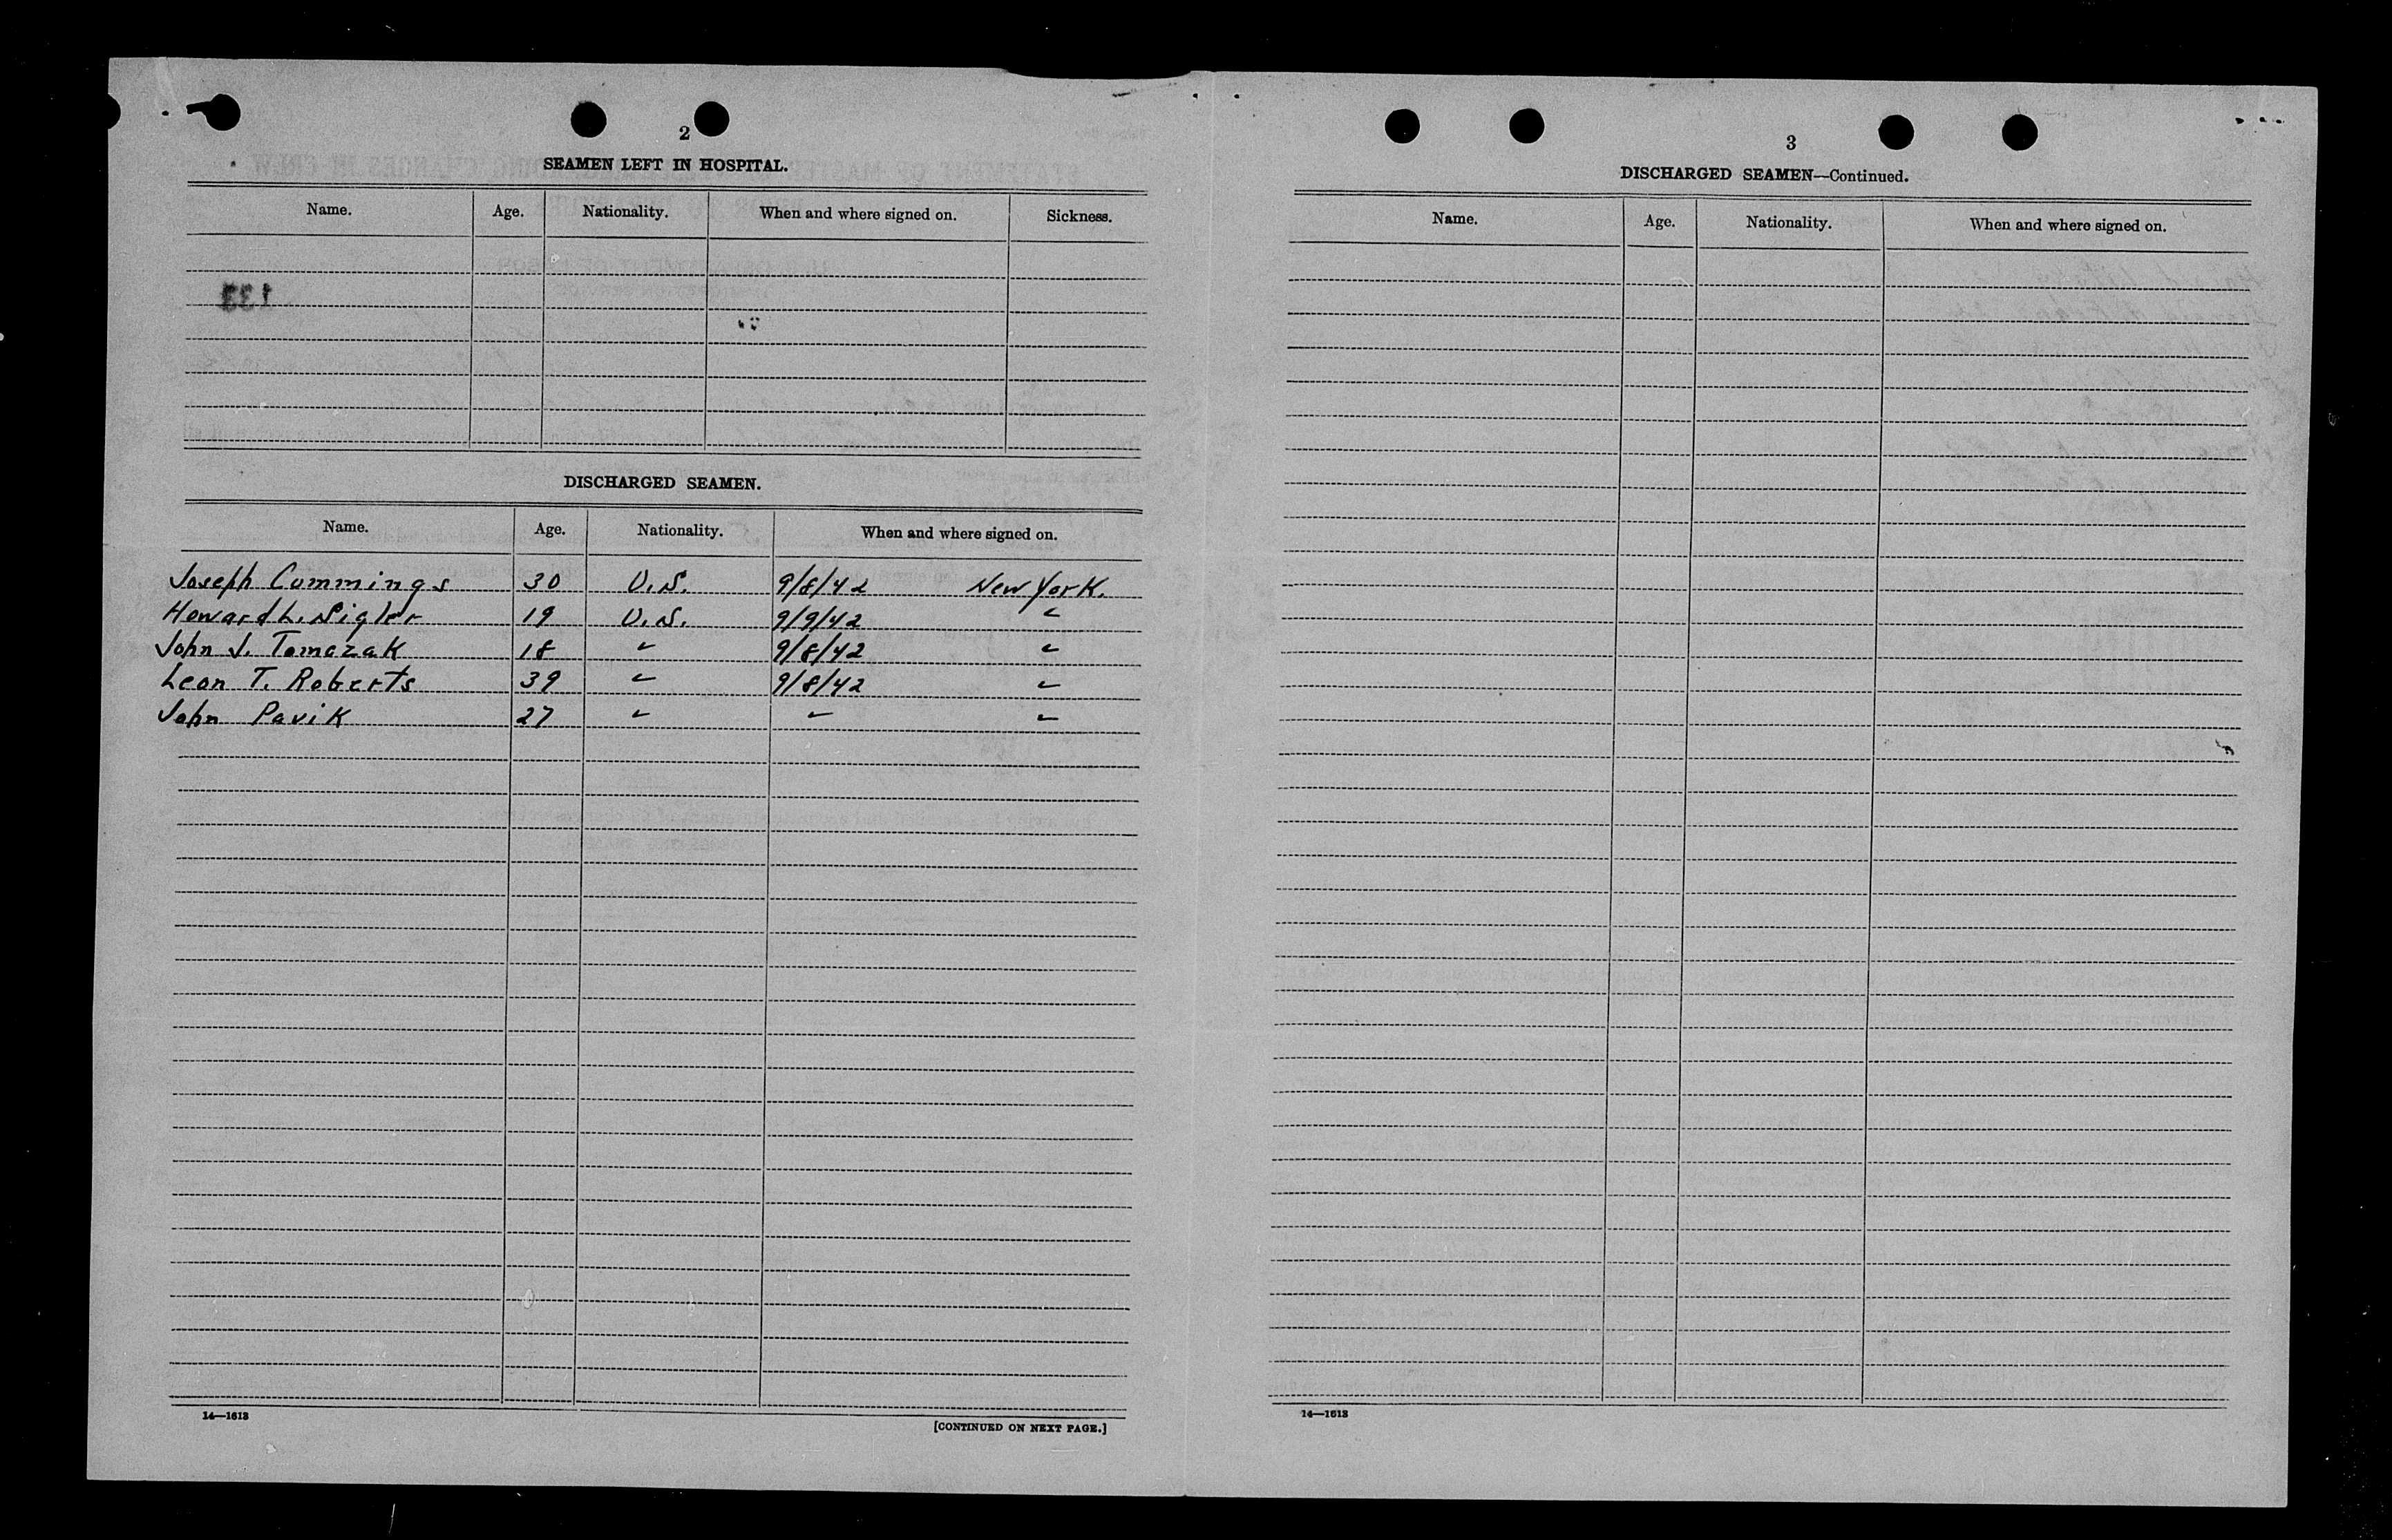 2
SEAMEN LEFT IN HOSPITAL.
Name. Age. Nationality. When and where signed on. Sickness.
DISCHARGED SEAMEN.
Name. Age. Nationality. When and where signed on.
Joseph Cummings 30 U.S. 9/8/42 New York.
Howard L. Sigler 19 U.S. 9/9/42 "
John J. Tomczak 18 " 9/8/42 "
Leon T. Roberts 39 " 9/8/42 "
John Pavik 27 " " "
14—1613
[CONTINUED ON NEXT PAGE.]
3
DISCHARGED SEAMEN—Continued.
Name. Age. Nationality. When and where signed on.
14—1613